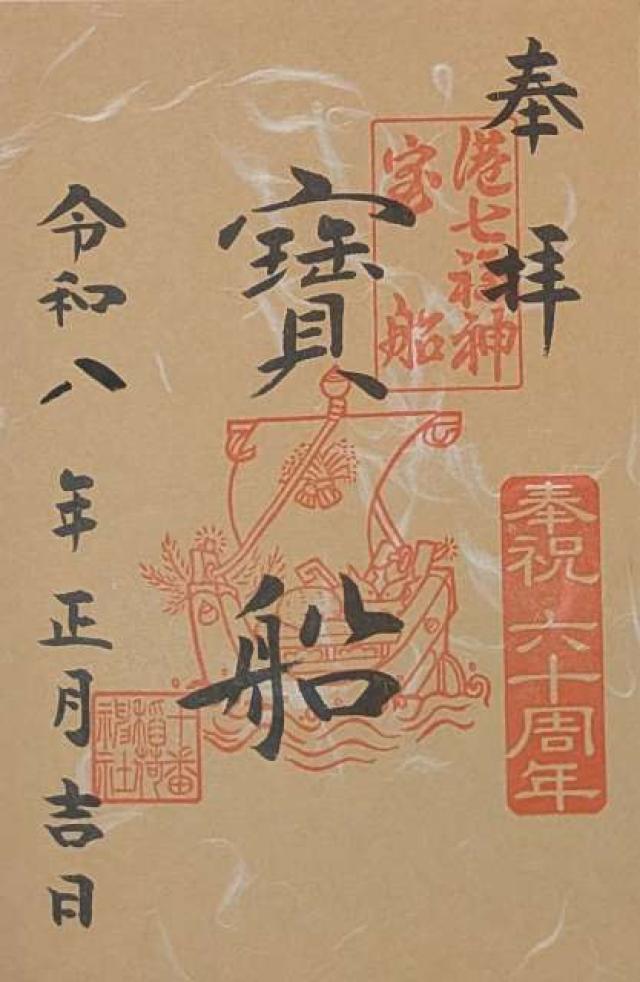 奉拝
港七福神
宝船
奉祝 六十周年
寳船
十番
稲荷
神社
令和八年正月吉日